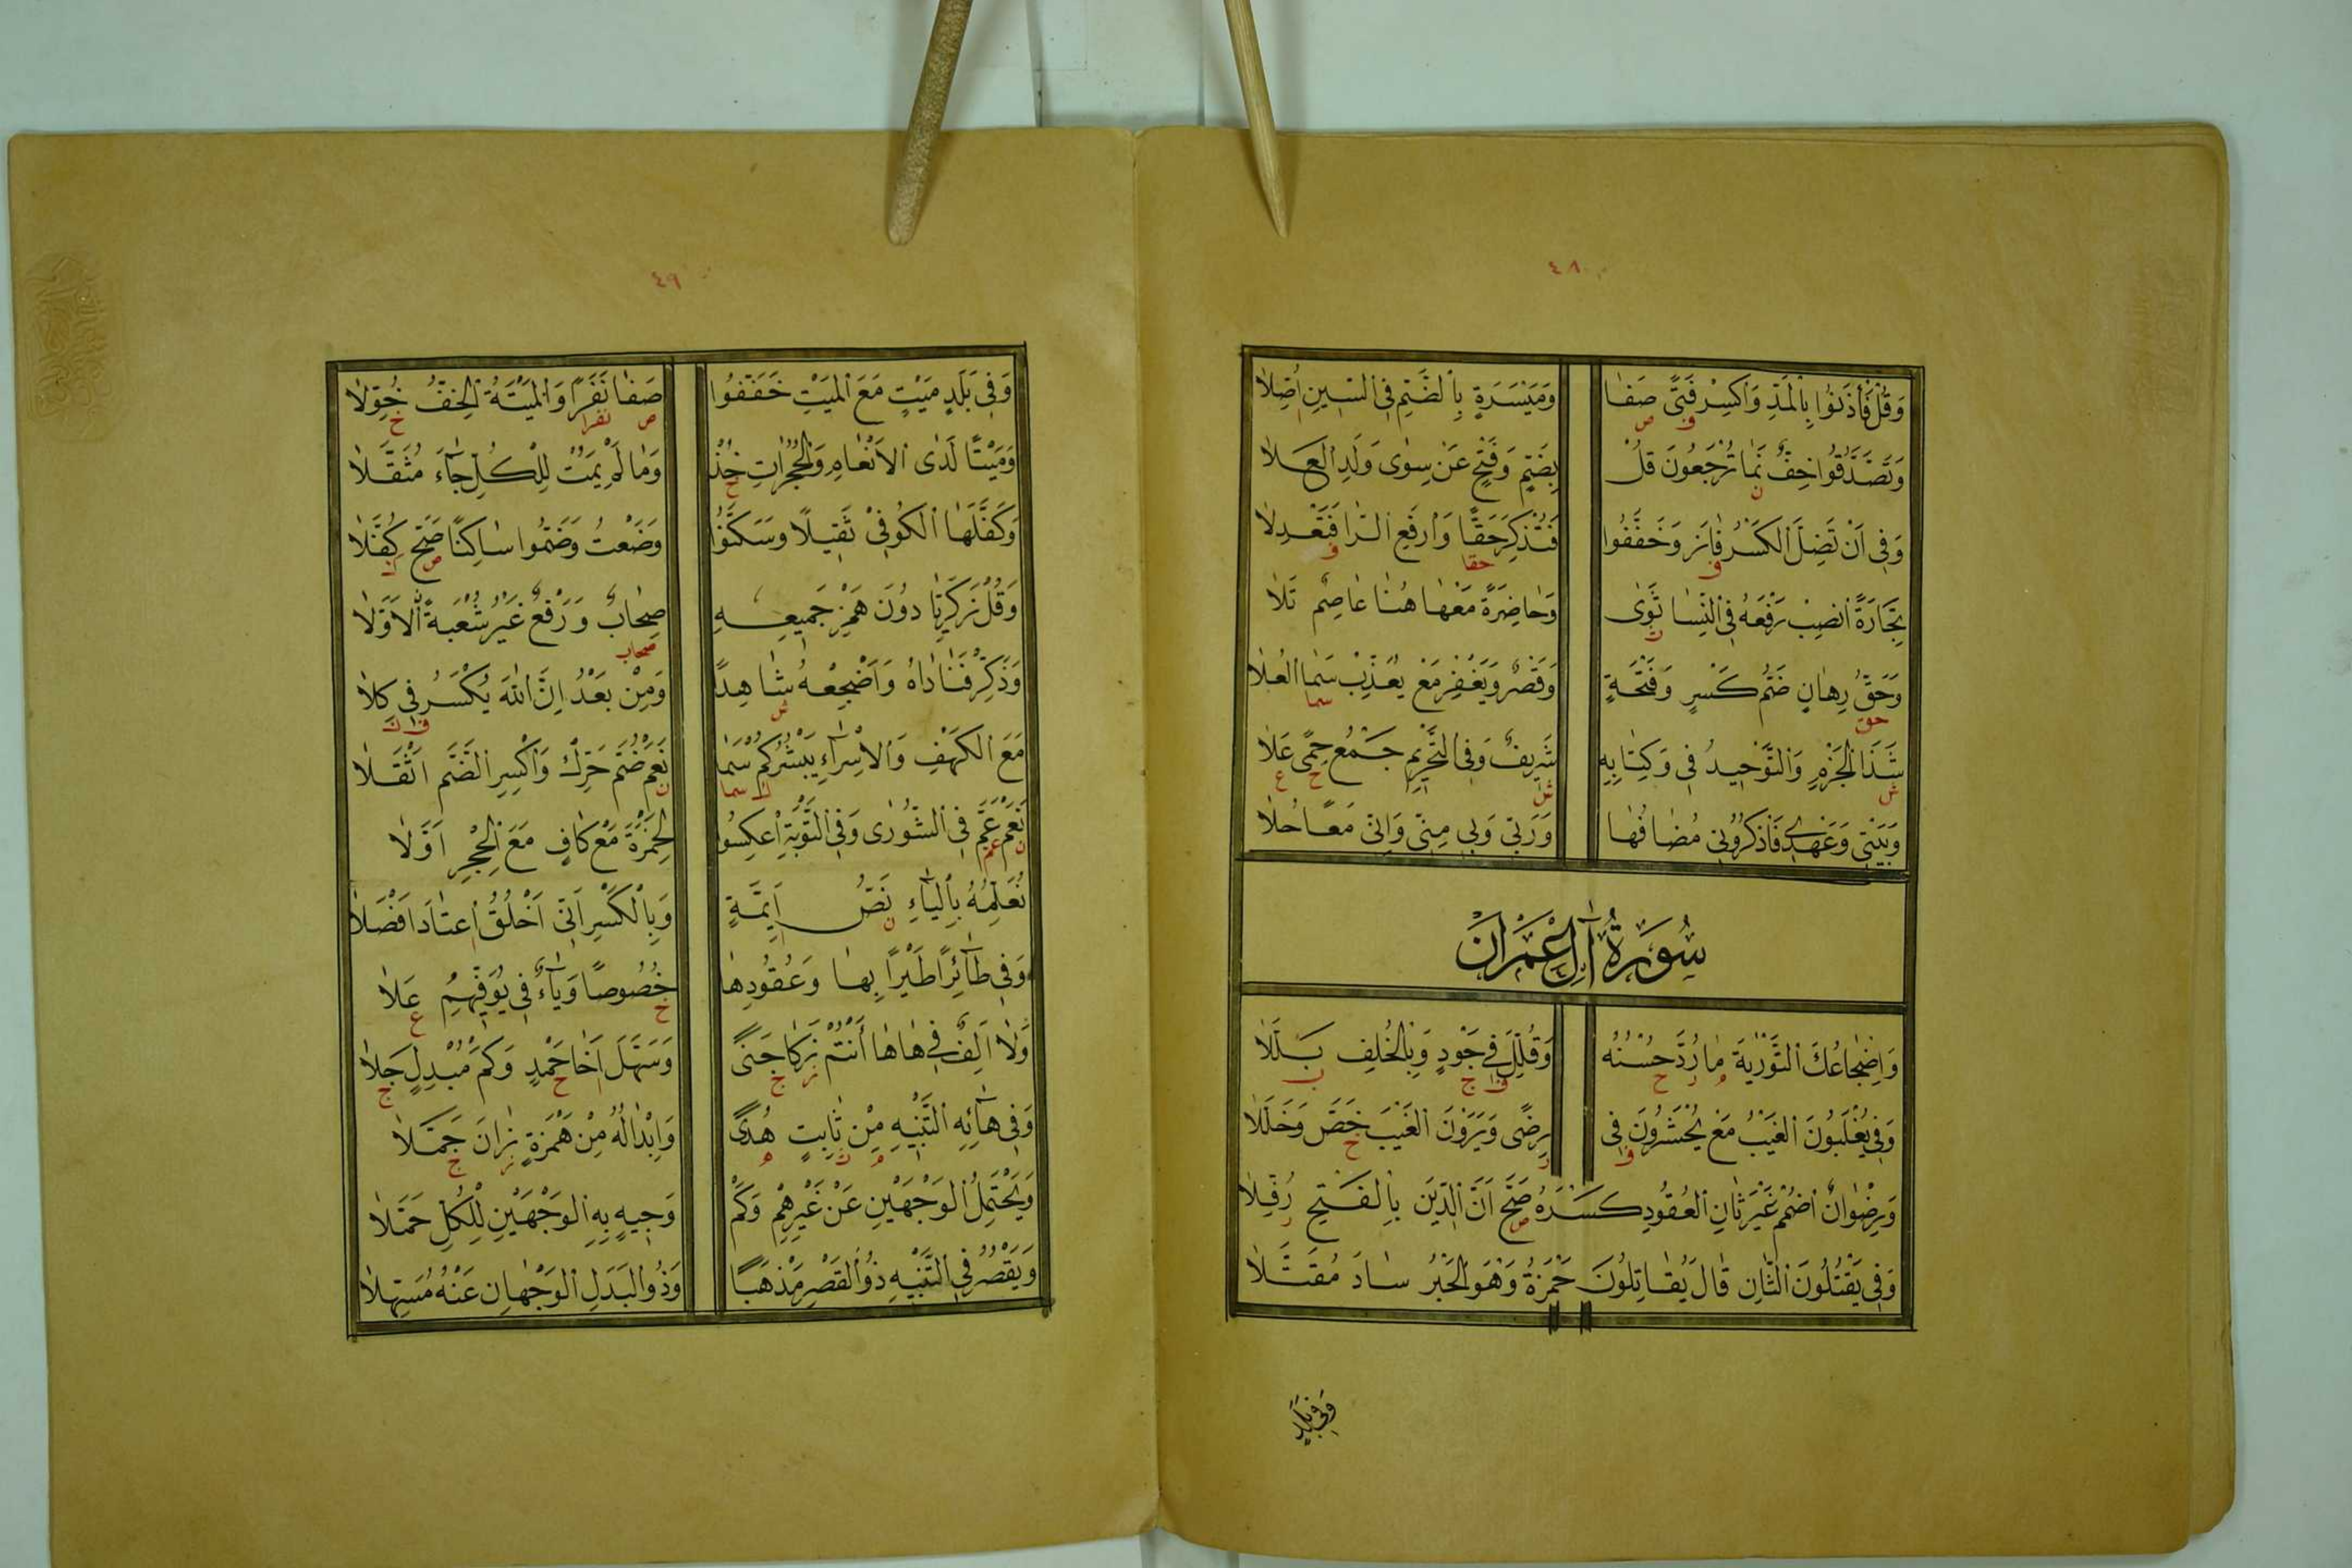 ٤٨
وَقُلْ فَأْذَنُوا بِالْمَدِّ وَاكْسِرْ فَتًى صَفَا وَمَيْسَرَةٍ بِالضَّمِّ فِي السِّينِ أُصِّلَا
وَتَصَدَّقُوا خِفٌّ نَمَا تُرْجَعُونَ قُلْ بِضَمٍّ وَفَتْحٍ عَنْ سِوَى وَلَدِ الْعَلَا
وَفِي أَنْ تَضِلَّ الْكَسْرُ فَازَ وَخَفَّفُوا فَتُذْكِرَ حَقًّا وَارْفَعِ الرَّا فَتَعْدِلَا
تِجَارَةً انْصِبْ رَفْعَهُ فِي النِّسَا ثَوَى وَحَاضِرَةً مَعْهَا هُنَا عَاصِمٌ تَلَا
وَحَقُّ رِهَانٍ ضَمُّ كَسْرٍ وَفَتْحَةٍ وَقَصْرٌ وَيَغْفِرْ مَعْ يُعَذِّبْ سَمَا الْعُلَا
شَذَا الْجَزْمِ وَالتَّوْحِيدُ فِي وَكِتَابِهِ شَرِيفٌ وَفِي التَّحْرِيمِ جَمْعُ حِمًى عَلَا
وَبَيْتِي وَعَهْدِي فَاذْكُرُونِي مُضَافُهَا وَرَبِّي وَبِي مِنِّي وَإِنِّي مَعًا حُلَا
سُورَةُ آلِ عِمْرَانَ
وَإِضْجَاعُكَ التَّوْرَيةَ مَا رُدَّ حُسْنُهُ وَقُلِّلَ فِي جَوْدٍ وَبِالْخُلْفِ بَلَّلَا
وَفِي يُغْلَبُونَ الْغَيْبُ مَعْ يُحْشَرُونَ فِي رِضًى وَيَرَوْنَ الْغَيْبَ خَصَّ وَخَلَّلَا
وَرِضْوَانٌ اضْمُمْ غَيْرَ ثَانِ الْعُقُودِ كَسْرَهُ صَحَّ أَنَّ الدِّينَ بِالْفَتْحِ رُفِّلَا
وَفِي يَقْتُلُونَ الثَّانِ قَالَ يُقَاتِلُونَ حَمْزَةُ وَهْوَ الْحَبْرُ سَادَ مُقَتَّلَا
وَفِي بَلَدٍ
٤٩
وَفِي بَلَدٍ مَيْتٍ مَعَ الْمَيْتِ خَفَّفُوا صَفَا نَفَرًا وَالْمَيْتَةُ الْخِفُّ خُوِّلَا
وَمَيْتًا لَدَى الْأَنْعَامِ وَالْحُجُرَاتِ خُذْ وَمَا لَمْ يَمُتْ لِلْكُلِّ جَاءَ مُثَقَّلَا
وَكَفَّلَهَا الْكُوفِيْ ثَقِيلًا وَسَكَّنُوا وَضَعْتُ وَضَمُّوا سَاكِنًا صَحَّ كُفَّلَا
وَقُلْ زَكَرِيَّا دُونَ هَمْزِ جَمِيعِهِ صِحَابٌ وَرَفْعٌ غَيْرُ شُعْبَةَ الْأَوَّلَا
وَذَكِّرْ فَنَادَاهُ وَأَضْجِعْهُ شَاهِدًا وَمِنْ بَعْدُ إِنَّ اللّٰهَ يُكْسَرُ فِي كِلَا
مَعَ الْكَهْفِ وَالْإِسْرَاءِ يَبْشُرُكُمْ سَمَا نَعَمْ ضُمَّ حَرِّكْ وَاكْسِرِ الضَّمَّ أَثْقَلَا
نَعَمْ عَمَّ فِي الشُّورَى وَفِي التَّوْبَةِ اعْكِسُوا لِحَمْزَةَ مَعْ كَافٍ مَعَ الْحِجْرِ أَوَّلَا
نُعَلِّمُهُ بِالْيَاءِ نَصُّ أَئِمَّةٍ وَبِالْكَسْرِ أَنِّي أَخْلُقُ اعْتَادَ أَفْضَلَا
وَفِي طَائِرًا طَيْرًا بِهَا وَعُقُودِهَا خُصُوصًا وَيَاءٌ فِي يُوَفِّيهِمُ عَلَا
وَلَا أَلِفٌ فِي هَا هَا أَنْتُمْ زَكَا جَنًى وَسَهِّلْ أَخَا حَمْدٍ وَكَمْ مُبْدِلٍ جَلَا
وَفِي هَائِهِ التَّنْبِيهِ مِنْ ثَابِتٍ هُدًى وَإِبْدَالُهُ مِنْ هَمْزَةٍ زَانَ جَمَّلَا
وَيَحْتَمِلُ الْوَجْهَيْنِ عَنْ غَيْرِهِمْ وَكَمْ وَجِيهٍ بِهِ الْوَجْهَيْنِ لِلْكُلِّ حَمَّلَا
وَيَقْصُرُ فِي التَّنْبِيهِ ذُو الْقَصْرِ مَذْهَبًا وَذُو الْبَدَلِ الْوَجْهَانِ عَنْهُ مُسَهِّلَا